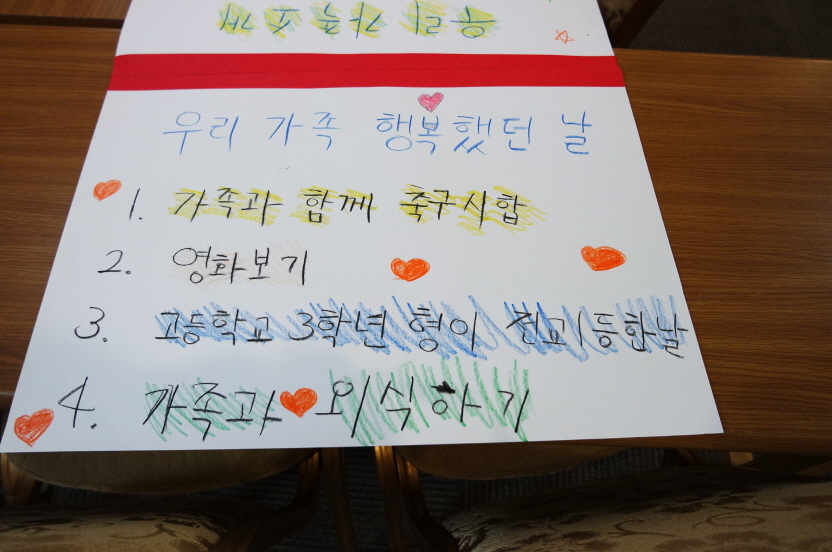 우리 가족소개
우리 가족 행복했던 날
1. 가족과 함께 축구시합
2. 영화보기
3. 고등학교 3학년 형이 전교1등한날
4. 가족과 외식하기